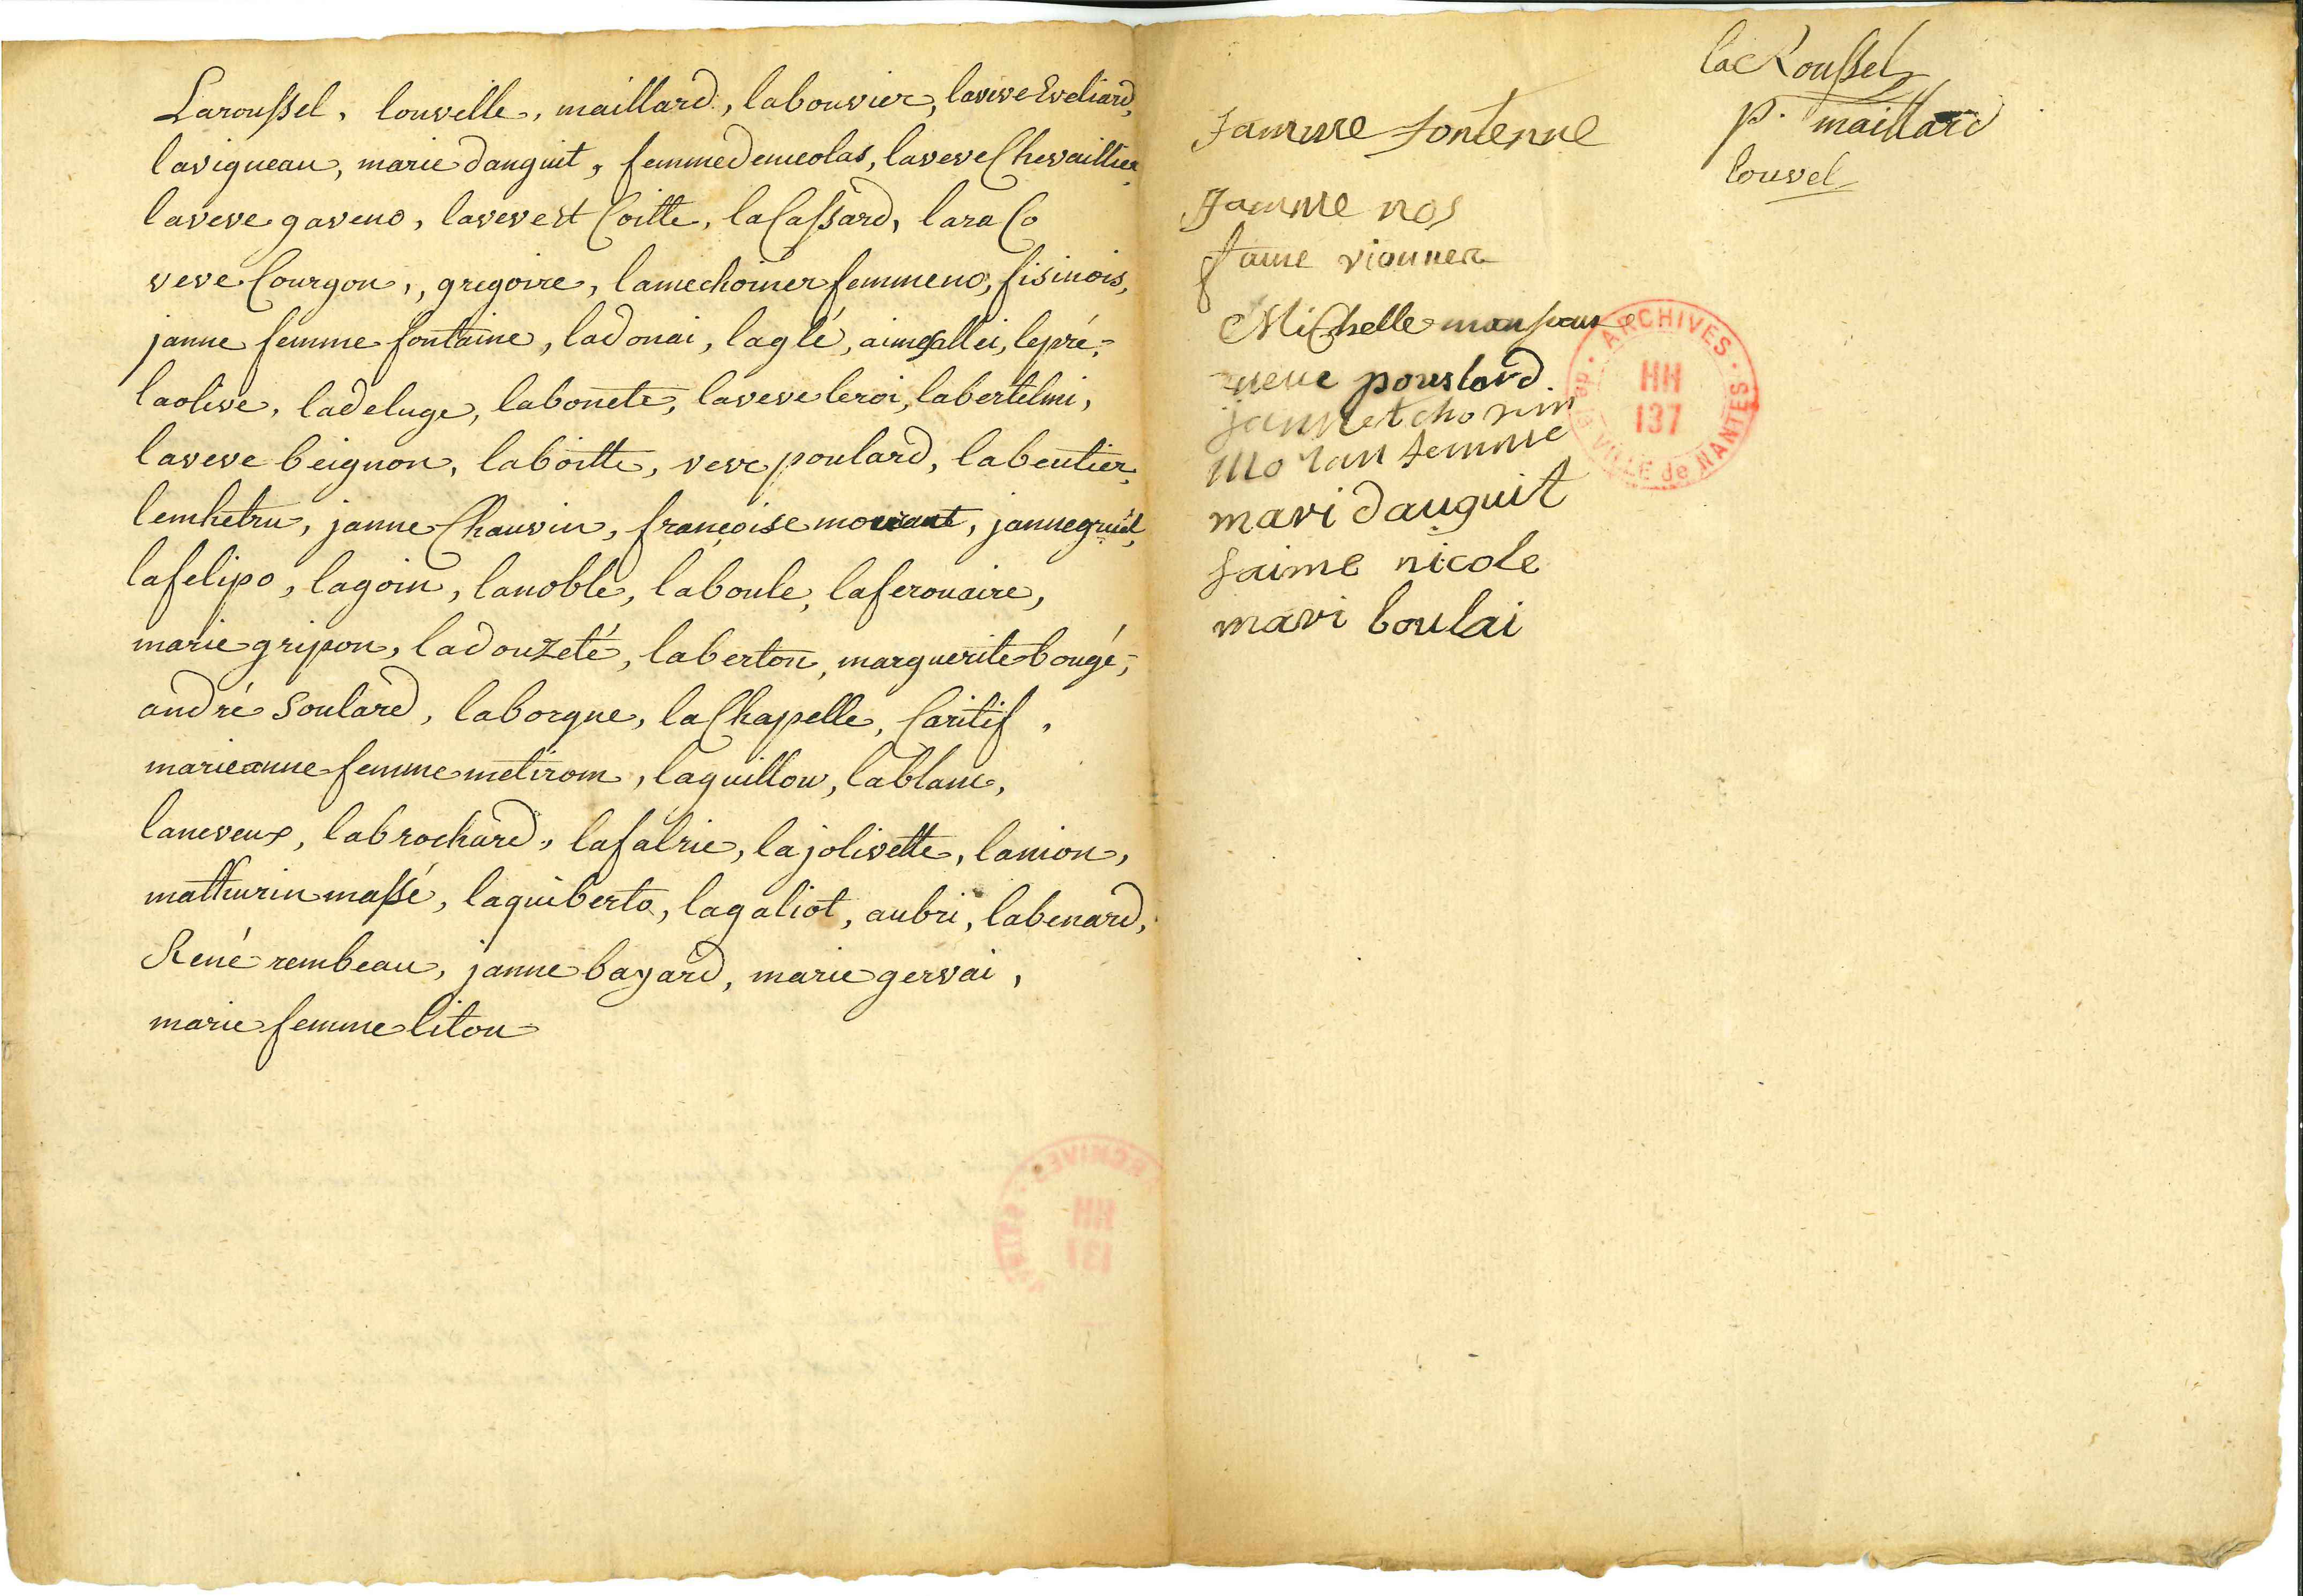 Laroussel, louvelle, maillard, labouvier, laveve Eveliard,
lavigneau, marie dauguit, femme denicolas, laveve Chevaillier,
laveve gaveno, laveve st Coitte, la Cassard, lara Co
veve Courgon,, gregoire, lamechoiner femmeno, fisinois,
janne femme fontaine, ladonai, laglé, aimeallei, lepré,
laolive, ladeluge, labonete, laveve leroi, labertelmi,
laveve beignon, laboitte, veve poulard, labeutier,
lemhetru, janne Chauvin, françoise morant, janne gruel,
lafelipo, lagoin, lanoble, laboule, laferonaire,
marie gripon, ladouzeté, laberton, marguerite bougé,
andré Soulard, laborgne, la Chapelle, Caritif,
marieanne femme metirom, laguillou, lablanc,
laneveux, labrochard, lafalrie, lajolivette, lanion,
mathurin massé, laquiberto, lagaliot, aubri, labenard,
René rembeau, janne bayard, marie gervai,
marie femme liton
lac Roussel
p. maillard
louvel
famme fontenne
famme nos
fame vionner
Michelle
veuve pouslard
jannet
femme
mari dauguit
faime nicole
mari boulai
ARCHIVES de la VILLE de NANTES
HH
137